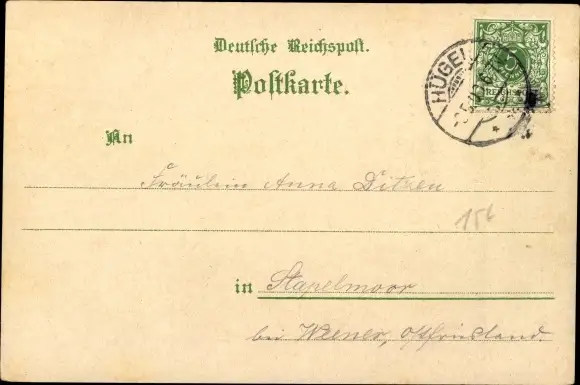 Deutsche Reichspost.
Postkarte.
HÜGEL
REICHSP
An
Fräulein Anna Ditzen
156
in Stapelmoor
bei Weener, Ostfriesland.